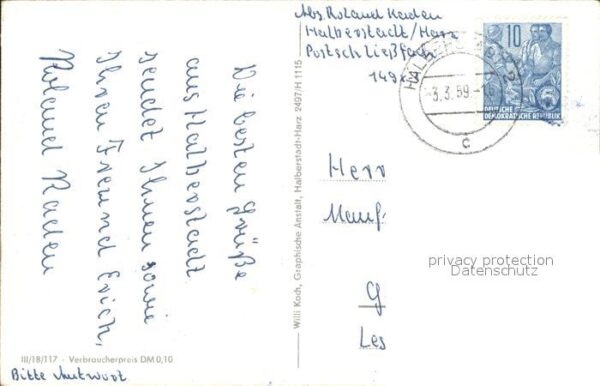 Die besten Grüße
aus Halberstadt
sendet Ihnen sowie
Ihren Freund Erich,
Roland Kaden
III/18/117 - Verbraucherpreis DM 0,10
Bitte Antwort
Willi Koch, Graphische Anstalt, Halberstadt-Harz 2497/H 1115
Abs. Roland Kaden
Halberstadt/Harz
Postschließfach
149
10
5
DEUTSCHE
DEMOKRATISCHE REPUBLIK
-3.3.59.-
c
Herr
Manf
G
Les
privacy protection
Datenschutz